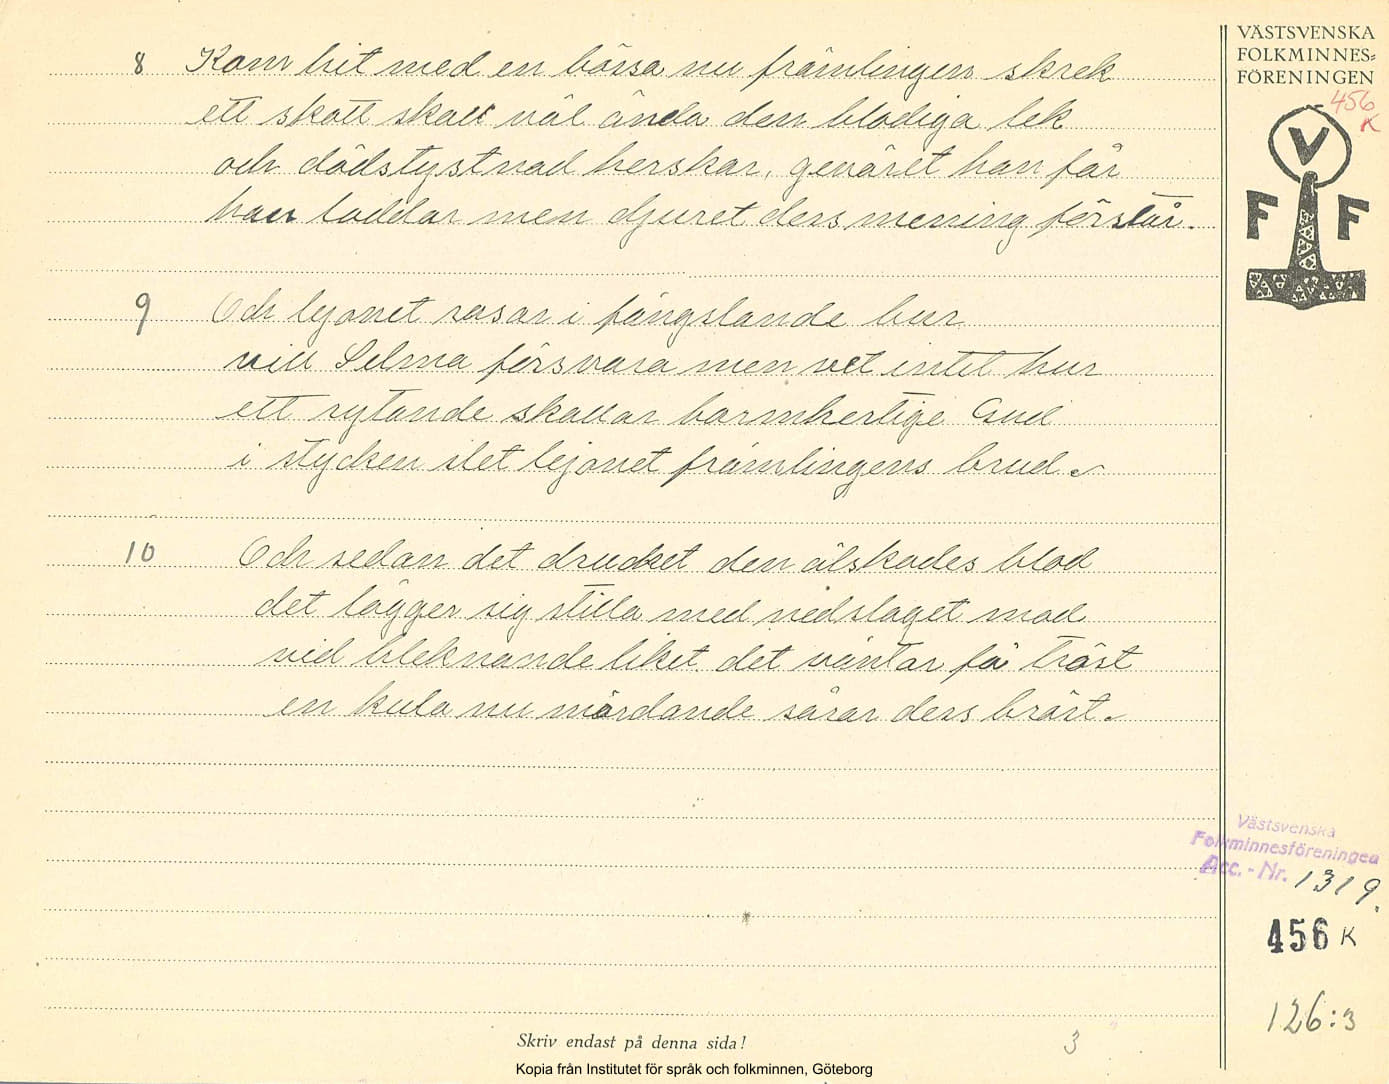 VÄSTSVENSKA
FOLKMINNES=
FÖRENINGEN
456
K
V
F F
8 Kom hit med en bössa nu främlingen skrek
ett skott skall väl ända den blodiga lek
och dödstystnad herskar, geväret han får
han laddar men djuret dess mening förstår.
9 Och lejonet rasar i fängslande bur
vill Selma försvara men vet intet hur
ett rytande skallar barmhertige Gud
i stycken slet lejonet främlingens brud.
10 Och sedan det drucket den älskades blod
det lägger sig stilla med nedslaget mod
vid bleknande liket det väntar få tröst
en kula nu mördande sårar dess bröst.
Västsvenska
Folkminnesföreningen
Acc.-Nr. 1319.
456 K
126:3
3
Skriv endast på denna sida!
Kopia från Institutet för språk och folkminnen, Göteborg